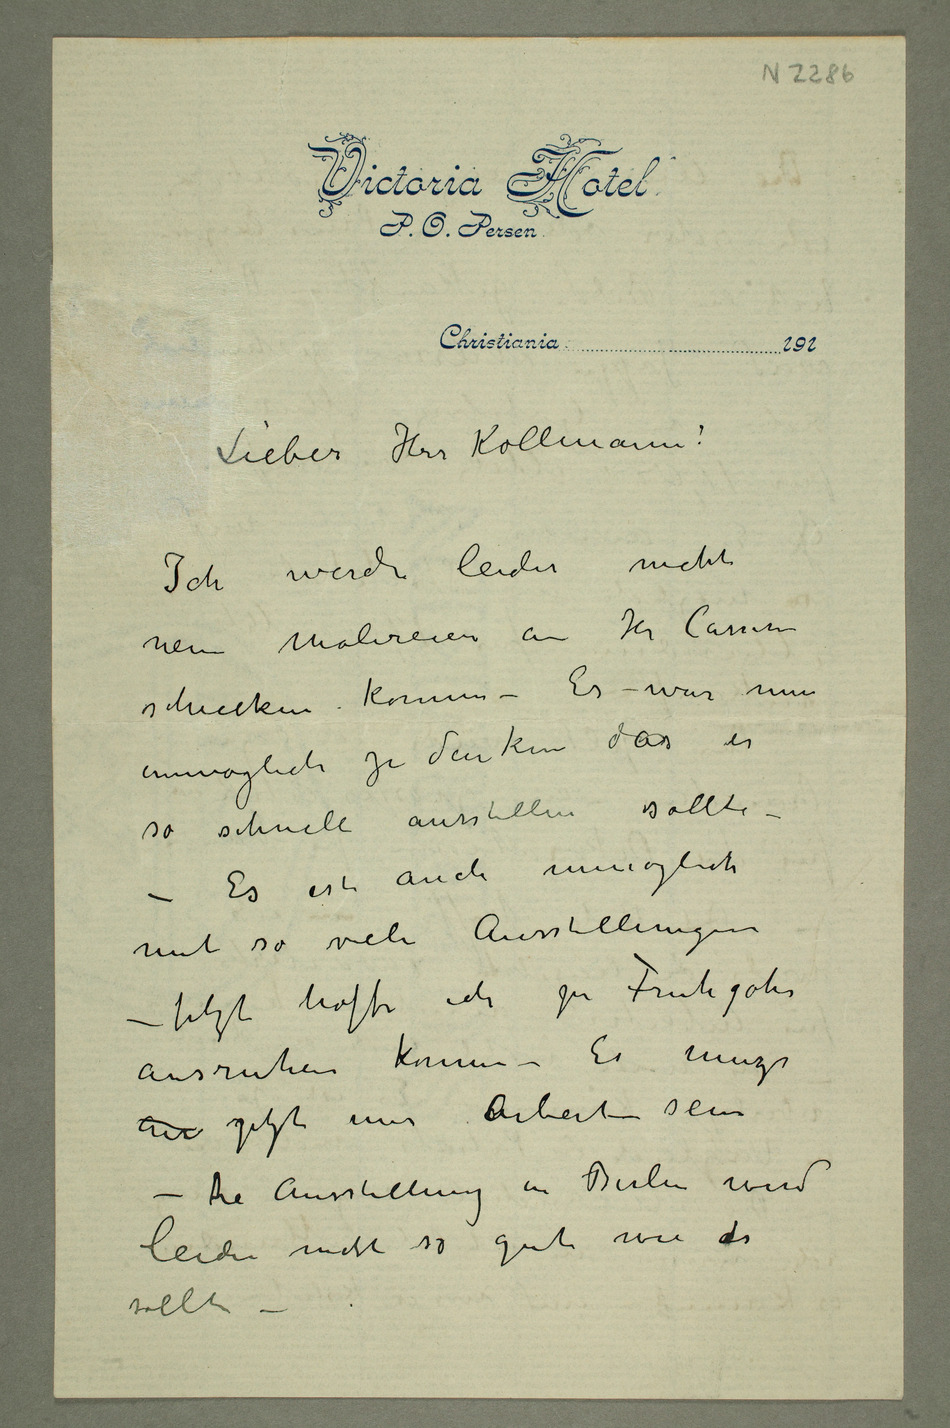 N 2286
Victoria Hotel.
P. O. Persen.
Christiania 191
Lieber Herr Kollmann!
Ich werde leider nicht
neue Malereien an Hr Cassirer
schicken können – Es war mir
unmöglich zu denken das er
so schnell ausstellen sollte –
– Es ist auch unmöglich
mit so viele Ausstellungen
– Jetzt hoffe ich zu Fruhjahr
ausruhen können – Es muss
jetzt nur Arbeit sein
– Die Ausstellung in Berlin wird
leider nicht so gut wie es
sollte –